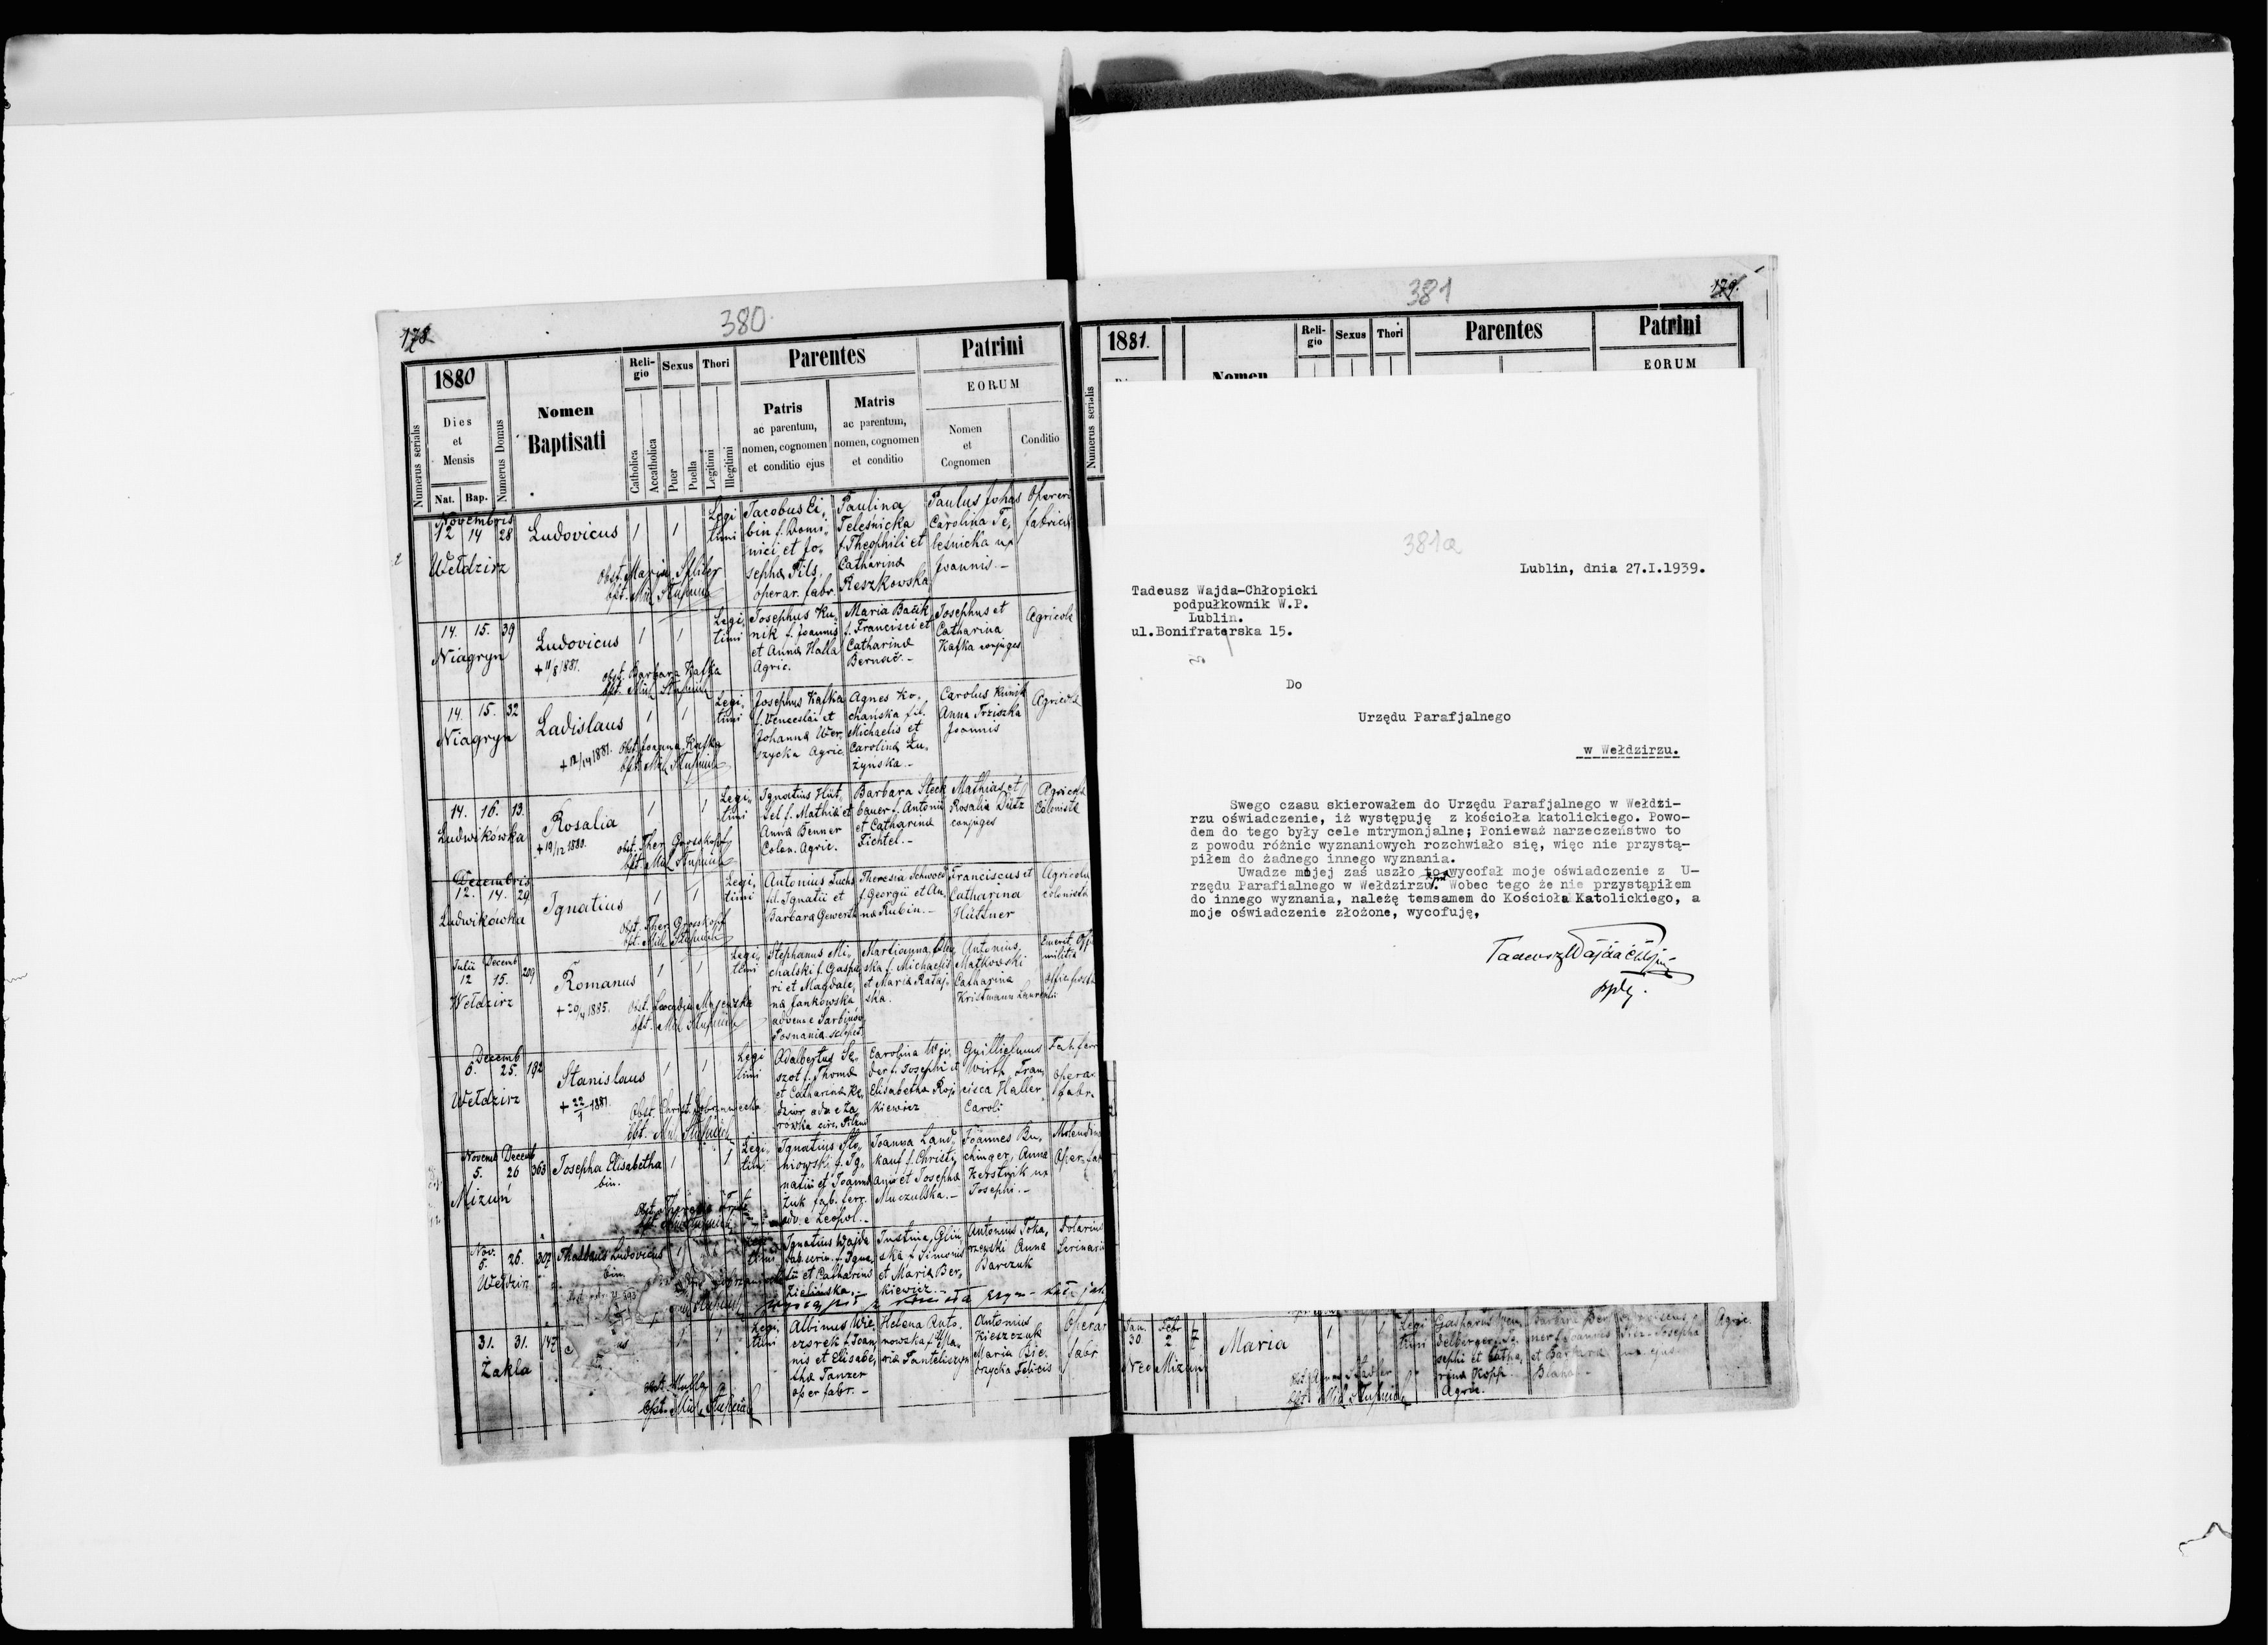 178
380
1880
Dies
et
Mensis
Nat. Bap.
Numerus serialis
Numerus Domus
Nomen
Baptisati
Religio
Catholica
Accatholica
Sexus
Puer
Puella
Thori
Legitimi
Illegitimi
Parentes
Patris
ac parentum,
nomen, cognomen
et conditio ejus
Matris
ac parentum,
nomen, cognomen
et conditio
Patrini
EORUM
Nomen
et
Cognomen
Conditio
Novembris
12 14 28
Wełdzirz
Ludovicus
1 1
Legi
timi
Jacobus Ei-
bin f. Domi-
nici et Jo-
sepha Pils
operar. fabr.
Paulina
Teleśnicka
f. Theophili et
Catharina
Reszkowska
Paulus Johas
Carolina Te-
leśnicka ux
Joannis.-
14. 15. 39
Niagryn
Ludovicus
+ 11/8 1881.
1 1
Legi-
timi
Josephus Ku-
nik f. Joannis
et Anna Halla
Agric.
Maria Bačik
f. Francisci et
Catharina
Bernač.-
Josephus et
Catharina
Kafka conjuges
Agricolae
obst. Barbara Kafka
14. 15. 32
Niagryn
Ladislaus
1 1
Legi-
timi
Josephus Kafka
f. Venceslai et
Johanna Wer-
szycka Agric.
Agnes Ko-
chańska fil.
Michaelis et
Carolina Lu-
żyńska.-
Carolus Kunik
Anna Trziszka
Joannis
Agricolae
Obst. Joanna Kafka
14. 16. 13.
Ludwikówka
Rosalia
+ 19/12 1880.
1 1
Legi-
timi
Ignatius Hüt-
tel f. Mathia et
Anna Benner
Colon. Agric.
Barbara Steck
bauer f. Antonii
et Catharina
Fichtel.-
Mathias et
Rosalia Dütz
conjuges
Agricolae
Coloniste
obst. Ther. Grosskopf
Decembris
12. 14. 29
Ludwikówka
Ignatius
1 1
Legi-
timi
Antonius Fuchs
fil. Ignatii et
Barbara Gewerth
Theresia Schwoch
f. Georgii et An-
na Rubin.-
Franciscus et
Catharina
Hüttner
Agricolae
colonistae
obst. Ther. Grosskopf
Julii Decemb
12 15. 209
Wełdzirz
Romanus
+ 20/4 1885.
1 1
Legi-
timi
Stephanus Mi-
chalski f. Gaspa-
ri et Magdale-
na Jankowska
Posnania
f. Michaelis
et Maria Rataj-
ska.
Antonius
Matkowski
Catharina
Kristmann Laurentii
Decemb
6. 25. 192
Wełdzirz
Stanislaus
+ 22/1 1881.
1 1
Legi
timi
Adalbertus Se-
szot f. Thoma
et Catharina Ke-
Carolina Wei-
der f. Josephi et
Elisabetha Roj-
kiewicz
Guillielmus
Wirth Fran-
cisca Haller
Caroli
Novemb Decemb
5. 26 363
Mizuń
Josepha Elisabetha
bin.
1 1
Legi-
timi
Ignatius Sło-
niowski f. Ig-
natii et Joanna
Żuk fab. ferr.
adv. e Leopol.-
Joanna Land-
kauf f. Christi-
ani et Josepha
Muczulska.-
Joannes Bu-
chinger, Anna
Kerstnik ux
Josephi.-
Nov.
5. 26. 307
Wełdzirz
Thaddaeus Ludovicus
bin.
1
Ignatius Wajda
f. Igna-
tii et Catharina
Zielińska.-
Justina Gliń-
ska f. Simonis
et Maria Ber-
kiewicz.-
Antonius Toka-
rzewski Anna
Barczuk
31. 31. 147
Żakla
1 1
Legi-
timi
Albinus Wie-
czorek f. Joan-
nis et Elisabe-
tha Tanzer
oper fabr.-
Helena Anto-
nowska f.
Antonius
Kieszczuk
Maria Bie-
drzycka Felicis
Operar
fabr
381
179.
1881.
Numerus serialis
Nomen
Religio
Sexus
Thori
Parentes
Patrini
EORUM
381a
Lublin, dnia 27.I.1939.
Tadeusz Wajda-Chłopicki
podpułkownik W.P.
Lublin.
ul.Bonifraterska 15.
Do
Urzędu Parafjalnego
w Wełdzirzu.
Swego czasu skierowałem do Urzędu Parafjalnego w Wełdzi-
rzu oświadczenie, iż występuję z kościoła katolickiego. Powo-
dem do tego były cele mtrymonjalne; Ponieważ narzeczeństwo to
z powodu różnic wyznaniowych rozchwiało się, więc nie przystą-
piłem do żadnego innego wyznania.
Uwadze mojej zaś uszło wycofał moje oświadczenie z U-
rzędu Parafialnego w Wełdzirzu. Wobec tego że nie przystąpiłem
do innego wyznania, należę temsamem do Kościoła Katolickiego, a
moje oświadczenie złożone, wycofuję,
Tadeusz Wajda Chłopicki
ppłk.
Jan. Febr
30. 2 7
Neo Mizun
Maria
1 1
Legi
timi
Gasparus Wen-
delberger f. Jo-
sephi et Catha-
rina Kopp
Agric.
Barbara Ber
ner f. Joannis
et Barbara
Blaha.-
Agric.